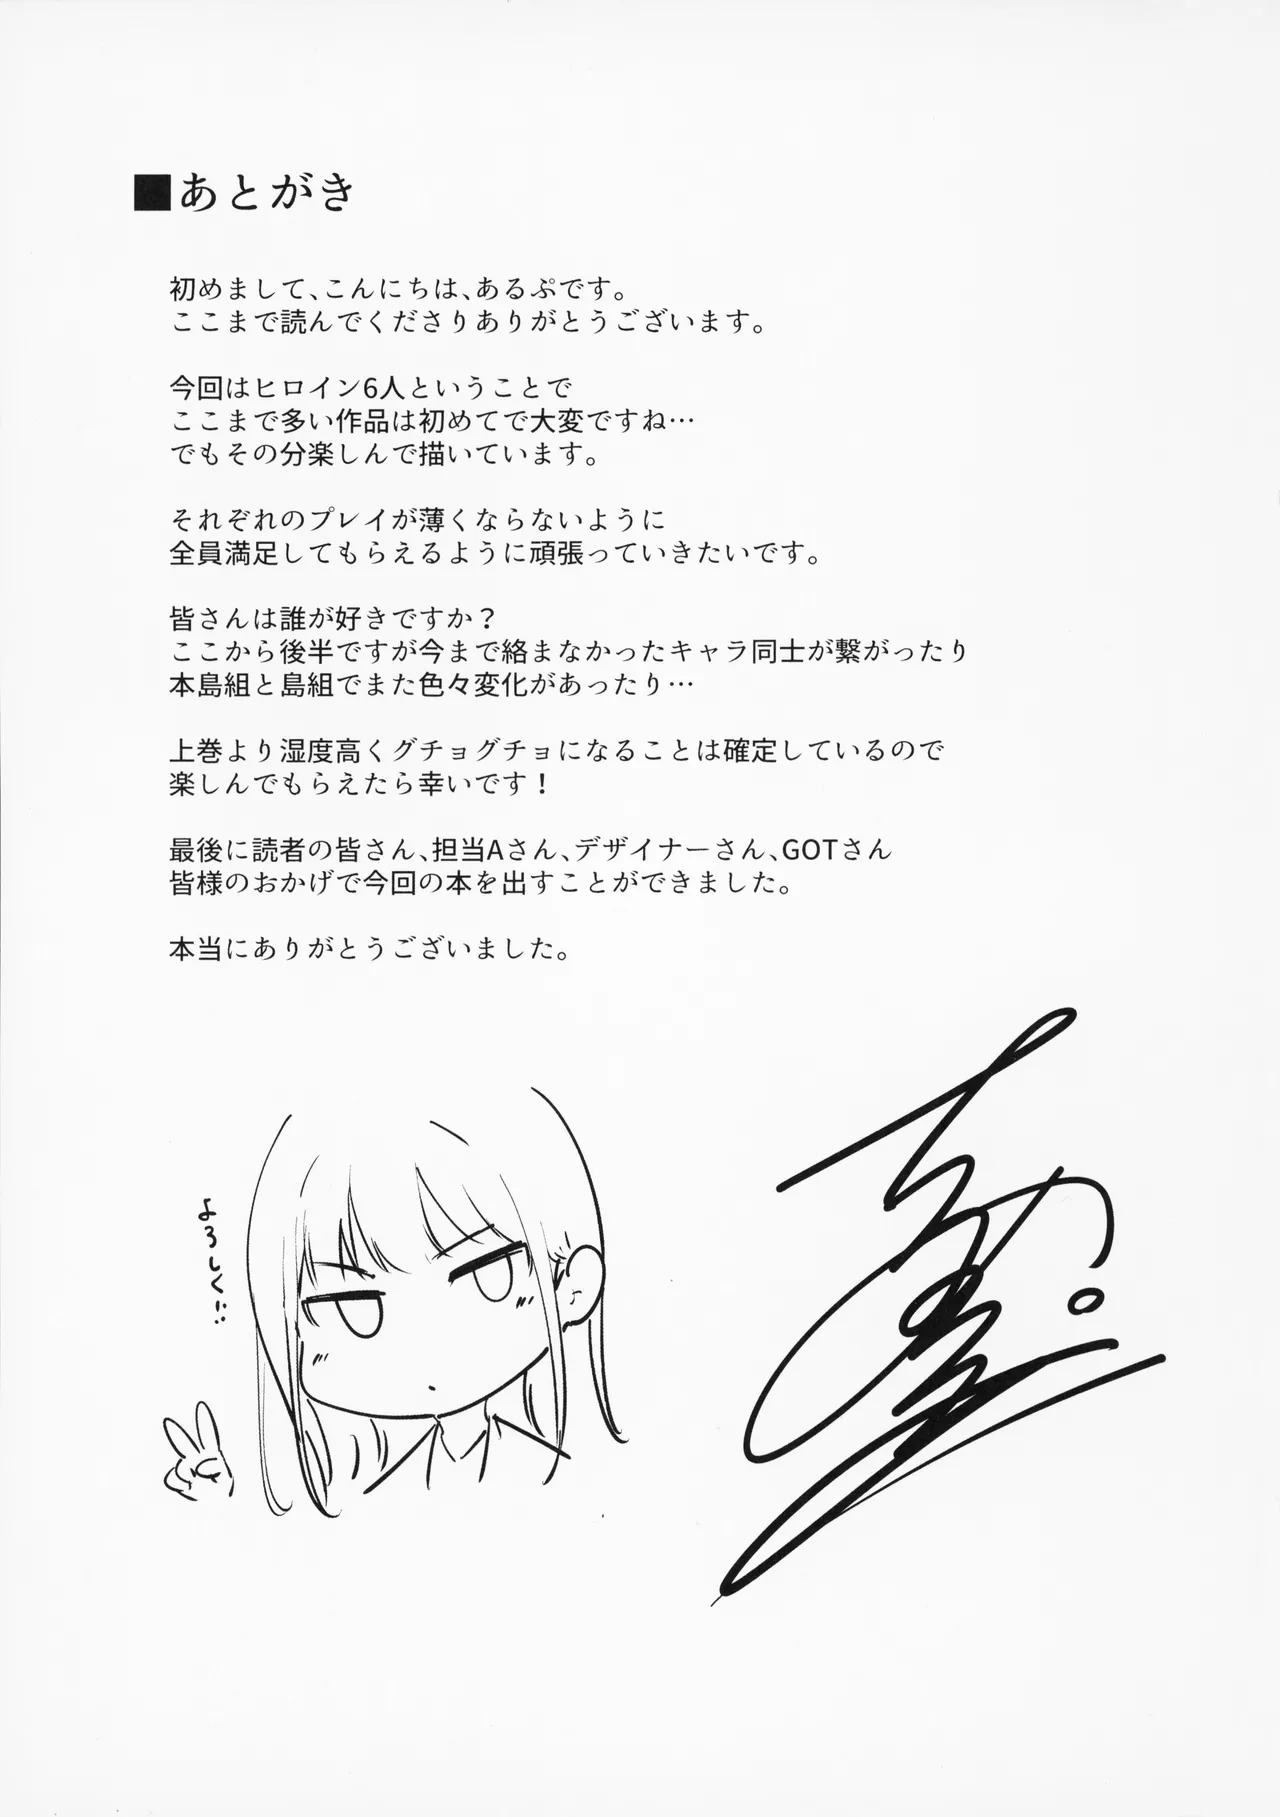 ■あとがき
初めまして、こんにちは、あるぷです。
ここまで読んでくださりありがとうございます。
今回はヒロイン6人ということで
ここまで多い作品は初めてで大変ですね…
でもその分楽しんで描いています。
それぞれのプレイが薄くならないように
全員満足してもらえるように頑張っていきたいです。
皆さんは誰が好きですか？
ここから後半ですが今まで絡まなかったキャラ同士が繋がったり
本島組と島組でまた色々変化があったり…
上巻より湿度高くグチョグチョになることは確定しているので
楽しんでもらえたら幸いです！
最後に読者の皆さん、担当Aさん、デザイナーさん、GOTさん
皆様のおかげで今回の本を出すことができました。
本当にありがとうございました。
よろしく!!